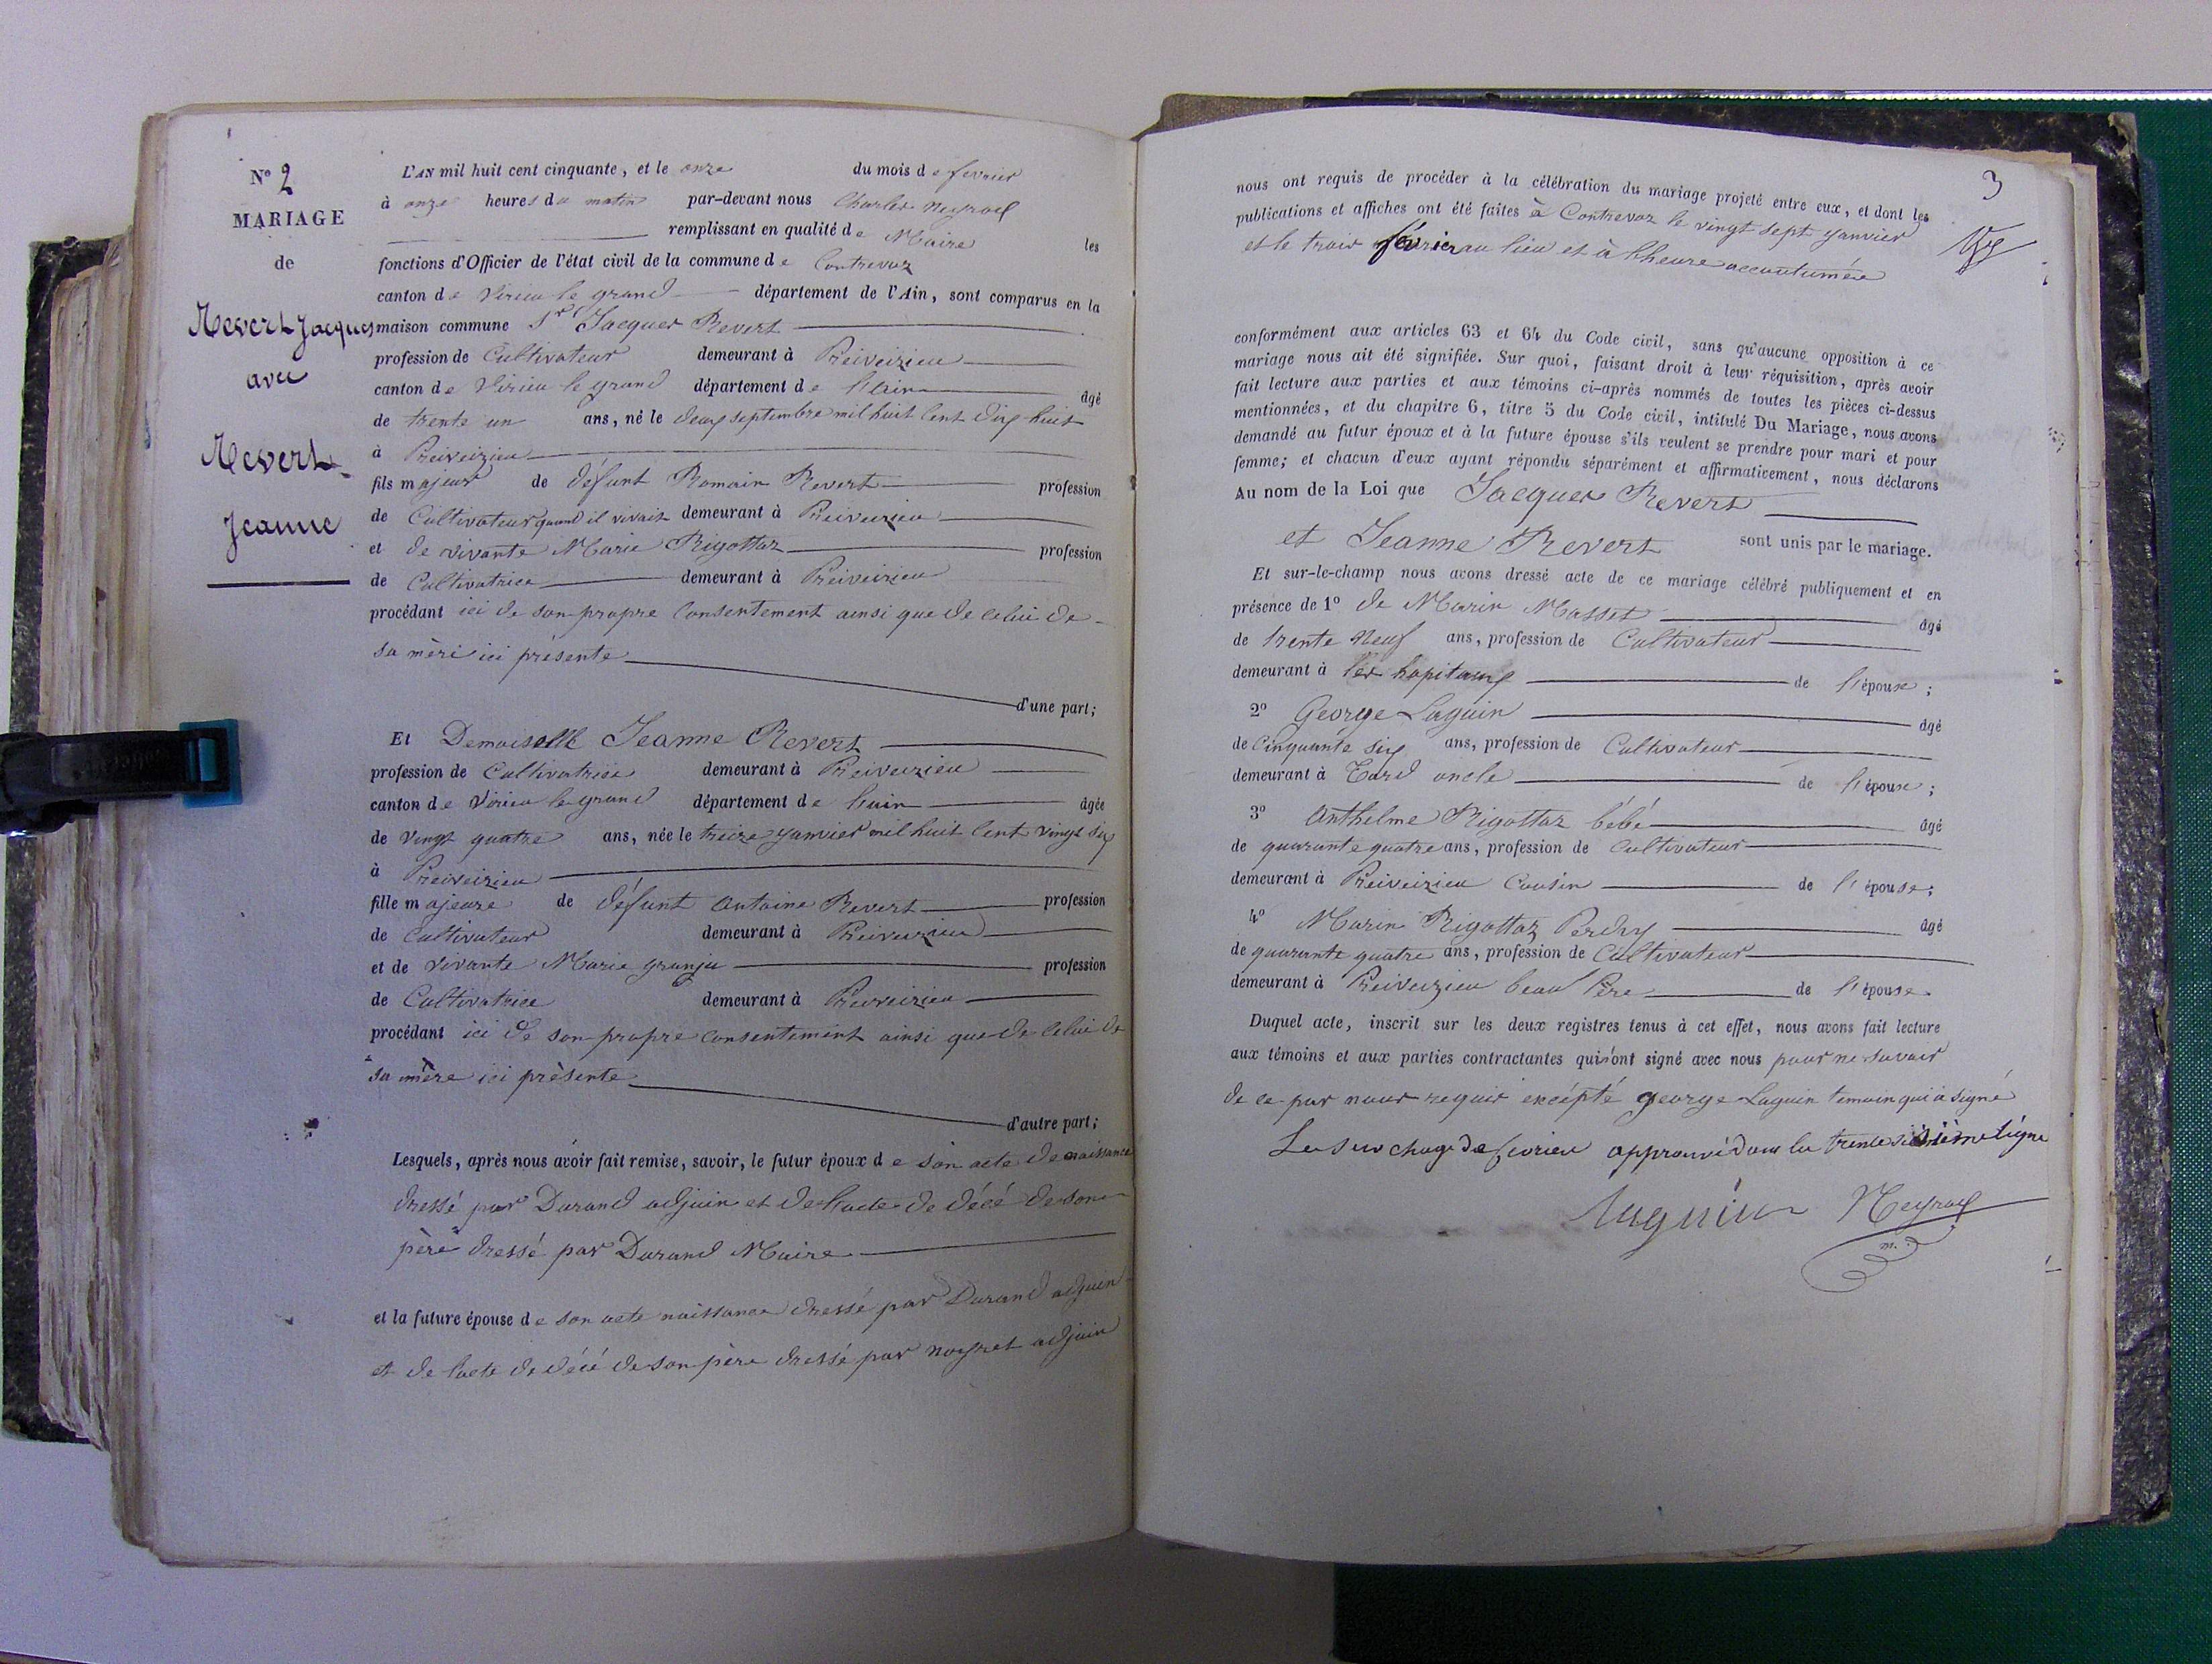 N° 2
MARIAGE
de
Revert Jacques
avec
Revert
Jeanne
L'AN mil huit cent cinquante, et le onze du mois de fevrier
à onze heures du matin par-devant nous Charles Neyroud
remplissant en qualité de Maire les
fonctions d'Officier de l'état civil de la commune de Contrevoz
canton de Virieu le grand département de l'Ain, sont comparus en la
maison commune Sr Jacques Revert
profession de Cultivateur demeurant à Preiveizieu
canton de Virieu le grand département de l'ain âgé
de trente un ans, né le deux septembre mil huit cent dix huit
à Preiveizieu
fils majeur de défunt Romain Revert profession
de Cultivateur quand il vivait demeurant à Preiveizieu
et de vivante Marie Rigottaz profession
de Cultivatrice demeurant à Preiveizieu
procédant ici de son propre consentement ainsi que de celui de
sa mère ici présente
d'une part;
Et Demoiselle Jeanne Revert
profession de Cultivatrice demeurant à Preiveizieu
canton de Virieu le grand département de l'ain âgée
de vingt quatre ans, née le treize janvier mil huit cent vingt six
à Preiveizieu
fille majeure de défunt Antoine Revert profession
de Cultivateur demeurant à Preiveizieu
et de vivante Marie granju profession
de Cultivatrice demeurant à Preiveizieu
procédant ici de son propre consentement ainsi que de celui de
sa mère ici présente
d'autre part;
Lesquels, après nous avoir fait remise, savoir, le futur époux de son acte de naissance
dressé par Durand adjuin et de l'acte de décé de son
père dressé par Durand Maire
et la future épouse de son acte naissance dressé par Durand adjuin
et de l'acte de décé de son père dressé par adjuin
3
nous ont requis de procéder à la célébration du mariage projeté entre eux, et dont les
publications et affiches ont été faites à Contrevoz le vingt sept janvier
et le trois février au lieu et à l'heure accoutumée
conformément aux articles 63 et 64 du Code civil, sans qu'aucune opposition à ce
mariage nous ait été signifiée. Sur quoi, faisant droit à leur réquisition, après avoir
fait lecture aux parties et aux témoins ci-après nommés de toutes les pièces ci-dessus
mentionnées, et du chapitre 6, titre 5 du Code civil, intitulé Du Mariage, nous avons
demandé au futur époux et à la future épouse s'ils veulent se prendre pour mari et pour
femme; et chacun d'eux ayant répondu séparément et affirmativement, nous déclarons
Au nom de la Loi que Jacques Revert
et Jeanne Revert sont unis par le mariage.
Et sur-le-champ nous avons dressé acte de ce mariage célébré publiquement et en
présence de 1° de Marin Masset âgé
de trente neuf ans, profession de Cultivateur
demeurant à les hopitaux de l'épouse;
2° George Luguin âgé
de Cinquante six ans, profession de Cultivateur
demeurant à oncle de l'épouse;
3° Anthelme Rigottaz bébé âgé
de quarante quatre ans, profession de Cultivateur
demeurant à Preiveizieu Cousin de l'épouse;
4° Marin Rigottaz Perdry âgé
de quarante quatre ans, profession de Cultivateur
demeurant à Preiveizieu beau Père de l'épouse
Duquel acte, inscrit sur les deux registres tenus à cet effet, nous avons fait lecture
aux témoins et aux parties contractantes qui n'ont signé avec nous pour ne savoir
de ce par nous requis excépté george Luguin temoin qui a signé
Le sur chage de fevrier approuvé dans la trente sixième ligne
Luguin Neyroud